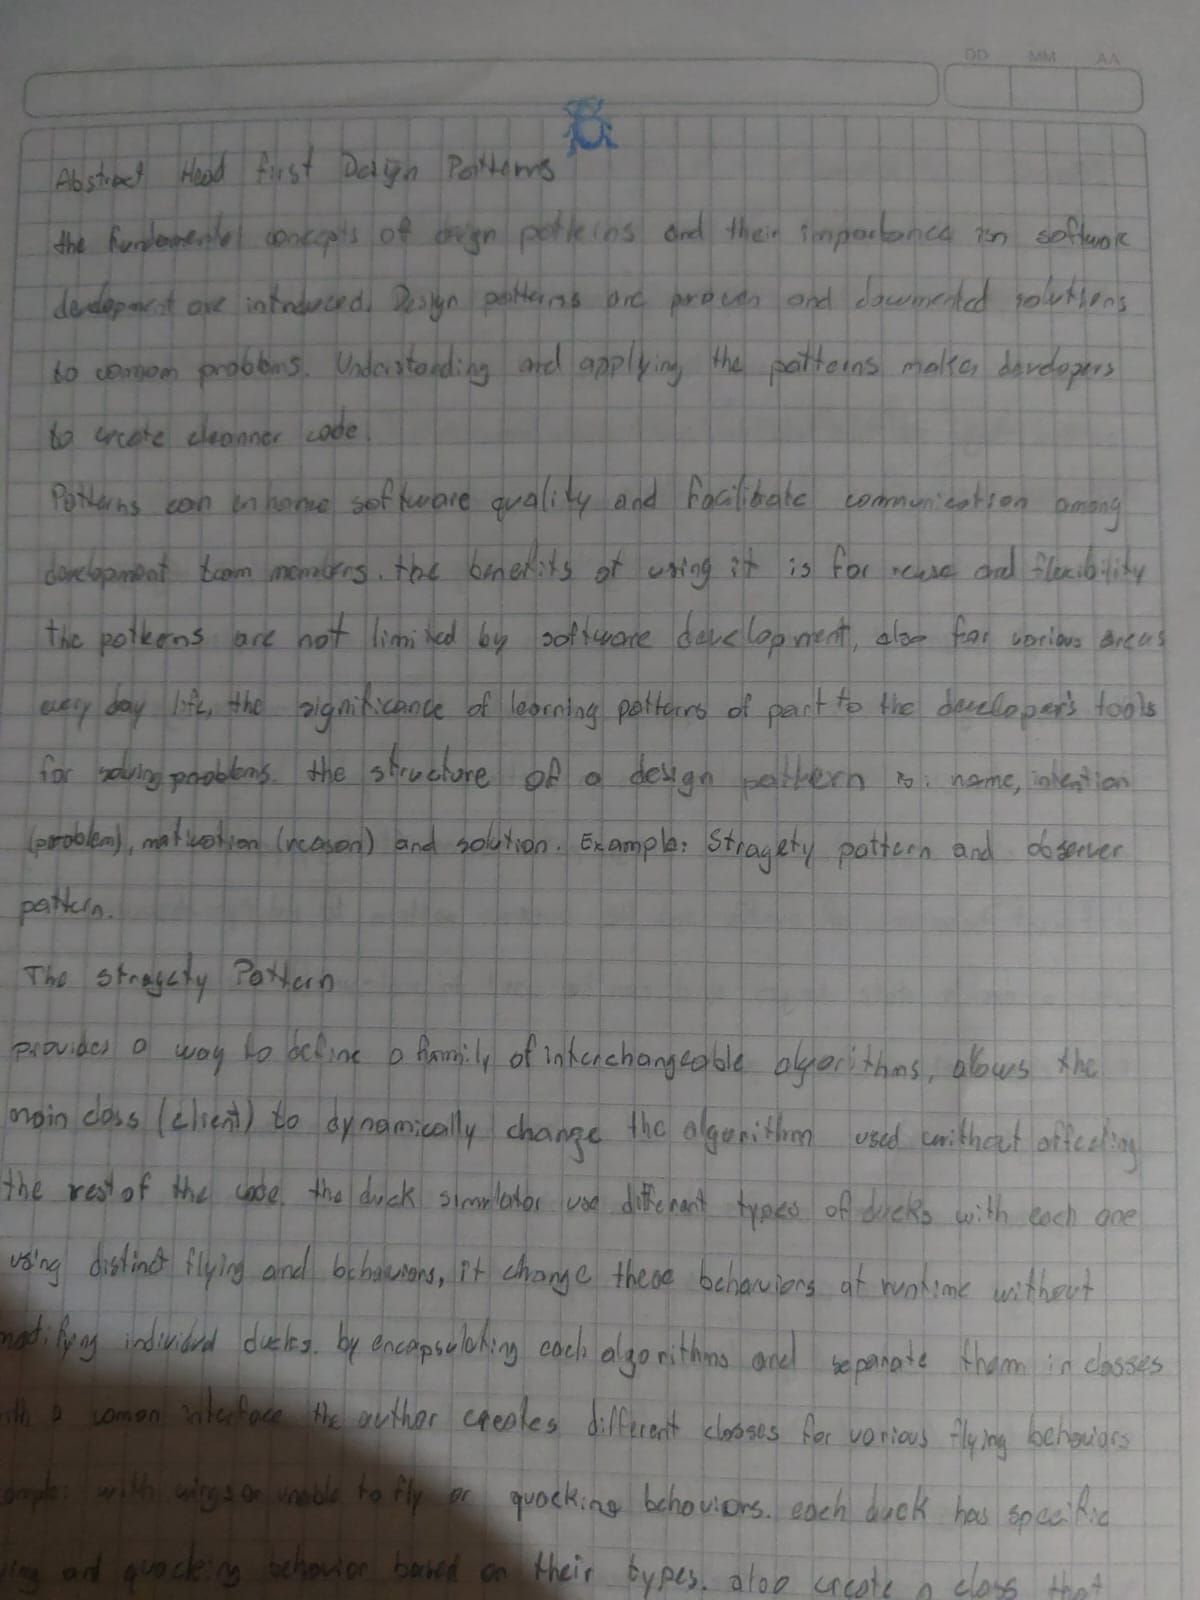 DD MM AA
Abstract Head first Design Patterns
the fundamental concepts of design patterns and their importance in software
development are introduced. Design patterns are proven and documented solutions
to common problems. Understanding and applying the patterns makes developers
to create cleanner code.
Patterns can enhance software quality and facilitate communication among
development team members. the benefits of using it is for reuse and flexibility
the patterns are not limited by software development, also for various areas
every day life, the significance of learning patterns of part to the developer's tools
for solving problems. the structure of a design pattern is: name, intention
(problem), motivation (reason) and solution. Example: Stragety pattern and observer
pattern.
The stragety Pattern
provides a way to define a family of interchangeable algorithms, allows the
main class (client) to dynamically change the algorithm used without affecting
the rest of the code. the duck simulator use different types of ducks with each one
using distinct flying and behaviors, it change these behaviors at runtime without
modifying individual ducks. by encapsulating each algorithms and separate them in classes
a comon interface the author creates different classes for various flying behaviors
with wings or unable to fly or quacking behaviors. each duck has specific
and quacking behavior based on their types. also create a class that